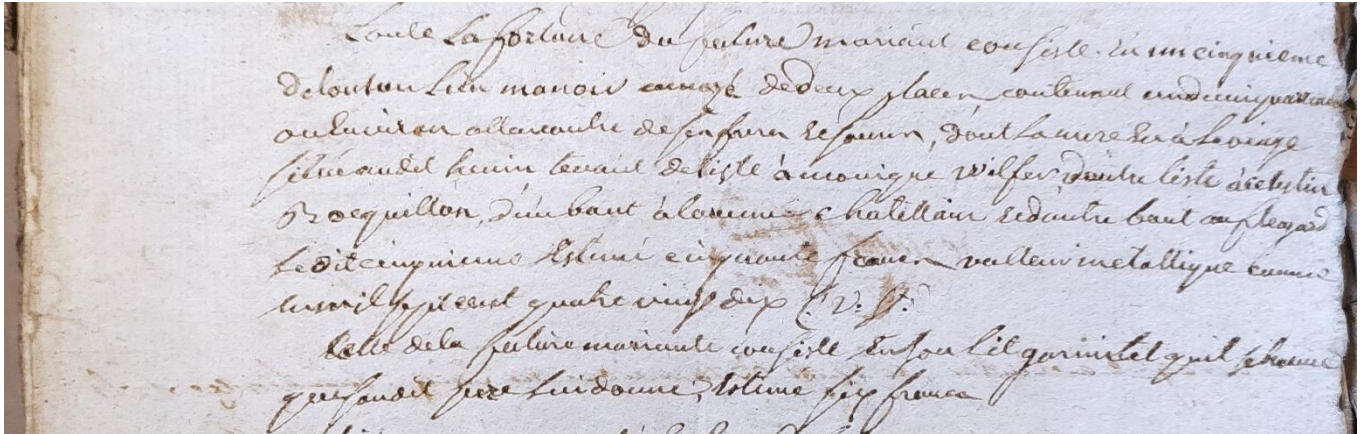 toute la fortune du future mariant consiste en un cinquieme
de tout un lieu manoir amazé de deux places, contenant
ou environ allencontre de ses freres et soeurs, dont la mere
situé audit henin tenant de liste à monique Wilfer d'autre liste à celestin
Rocquillon, d'un bout à la veuve Chatellain et d'autre bout au flegard
ledit cinquieme estimé cinquante francs valleur metallique comme
en mil sept cent quatre vingt dix (v. st.)
Celle de la future mariante consiste en son lit garni tel qu'il se trouve
que sondit pere lui donne, estimé six francs